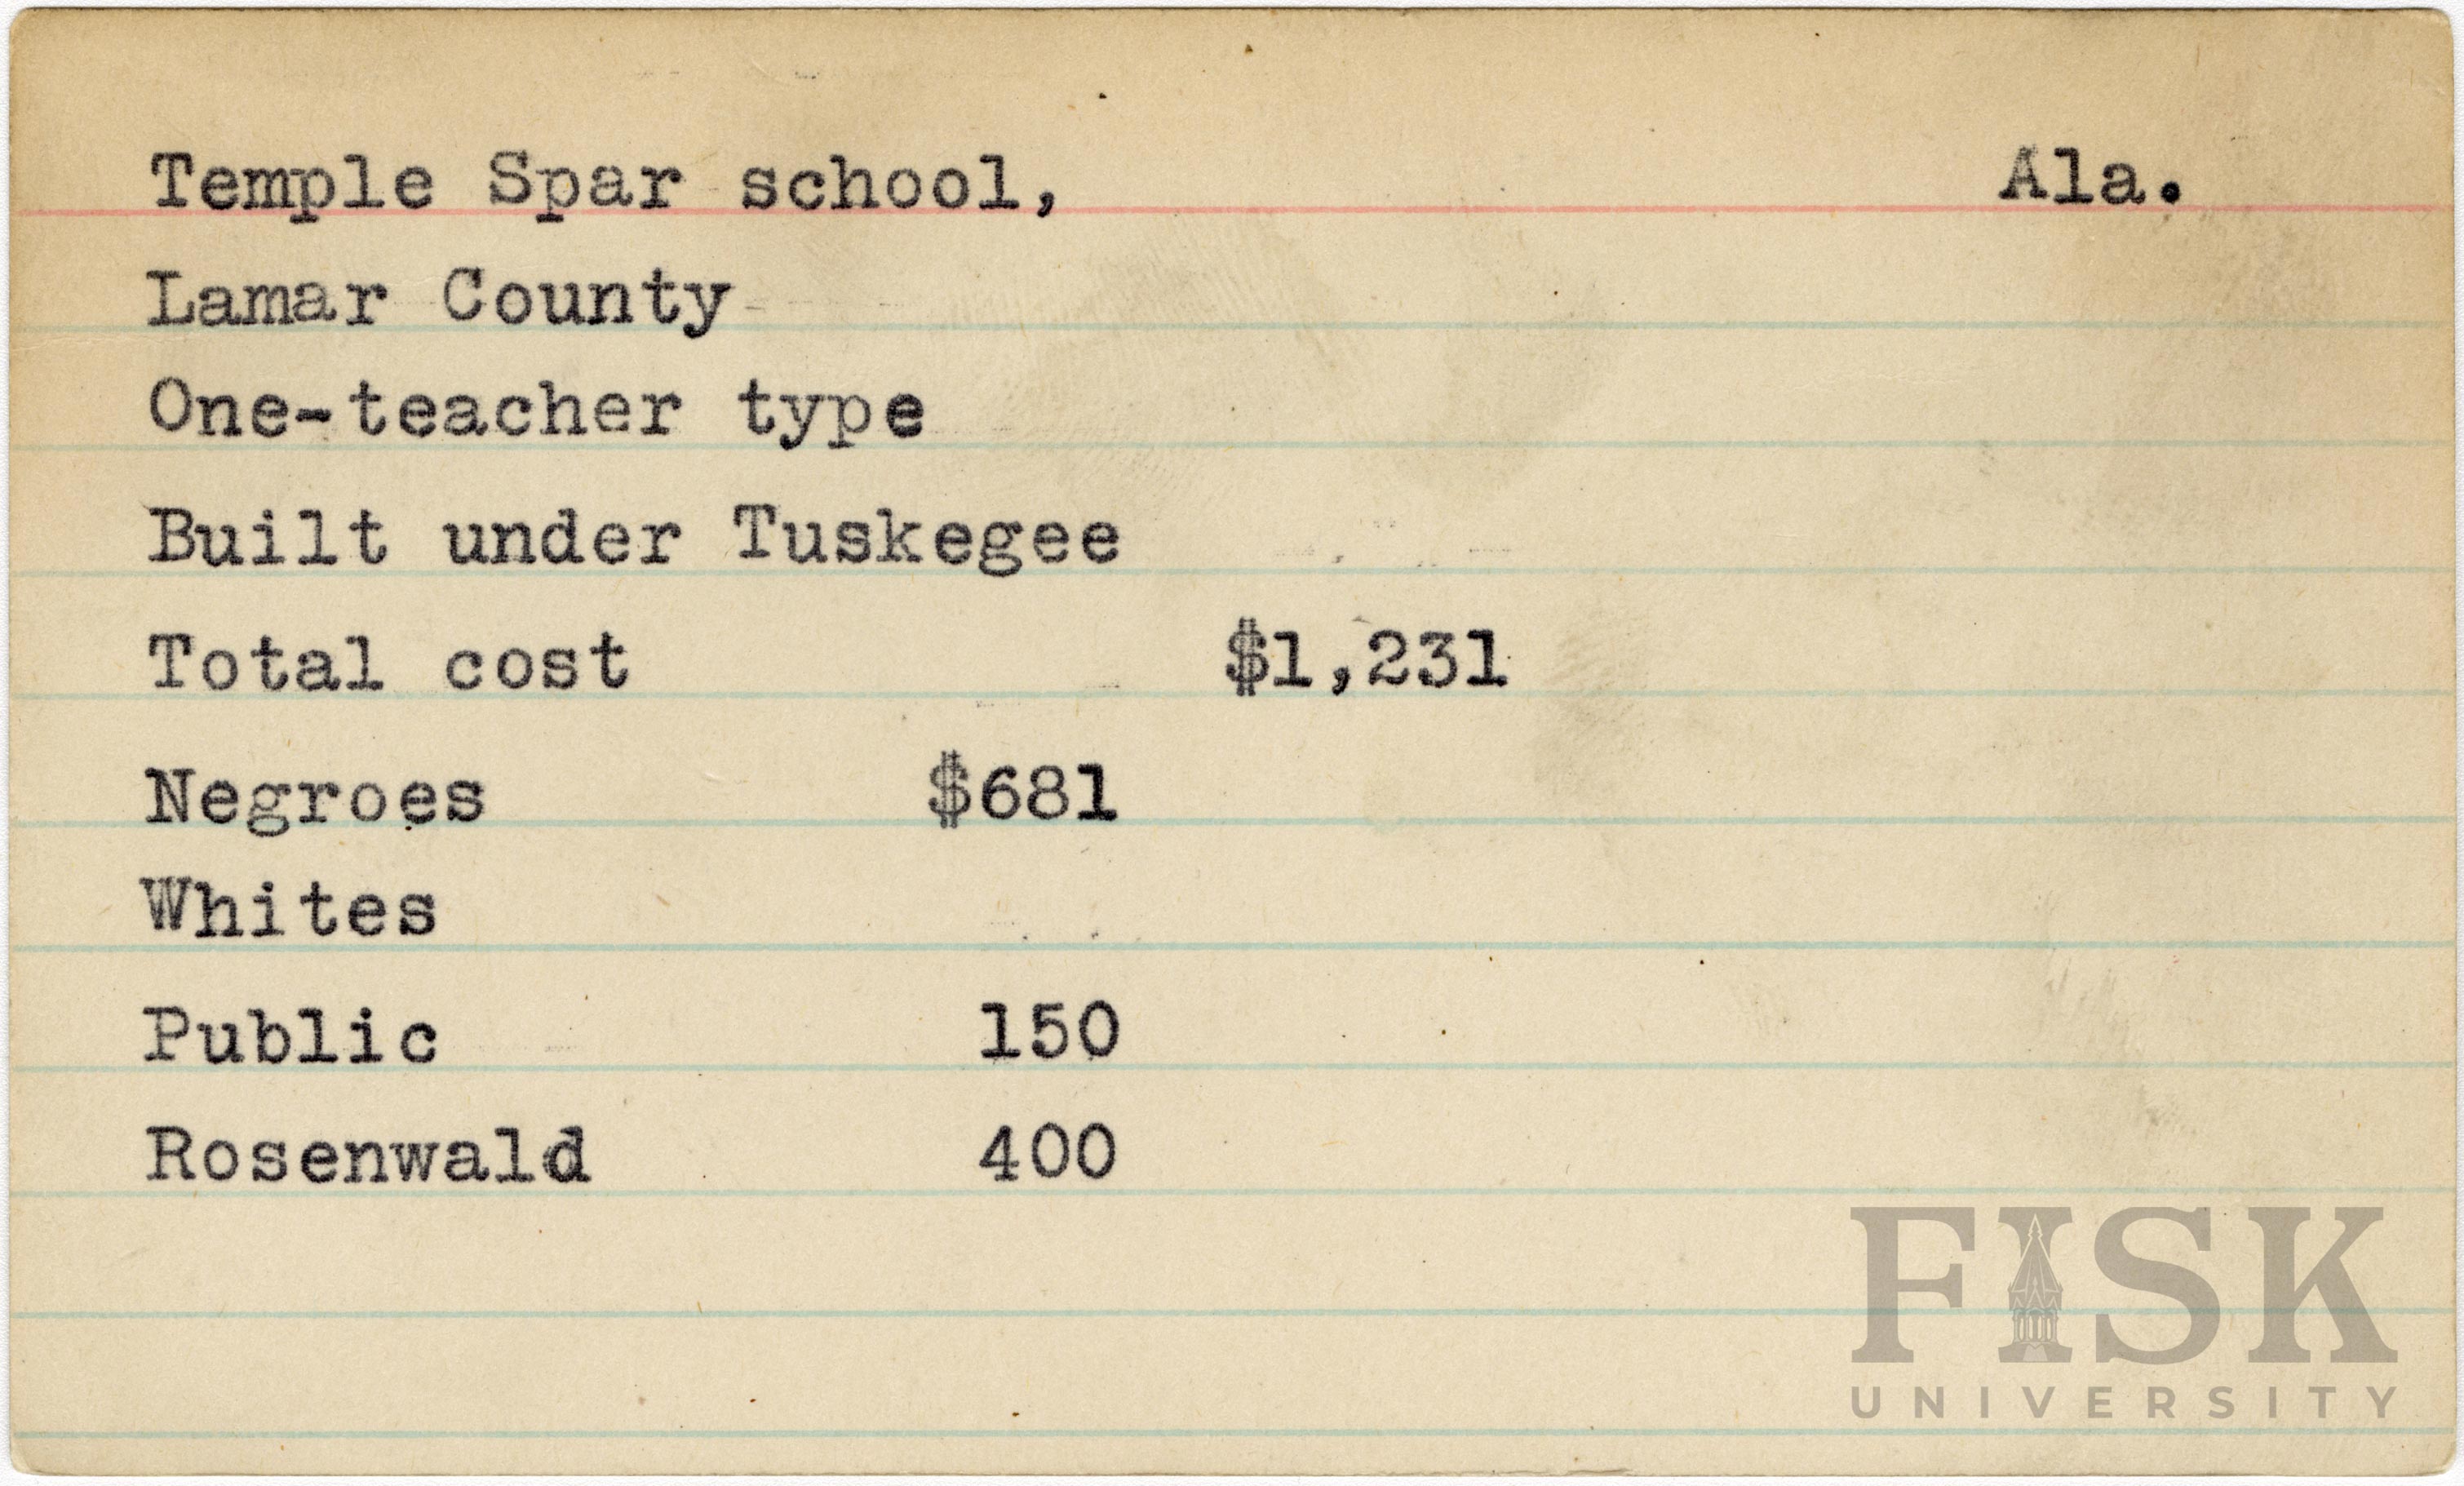 Temple Spar school, Ala.
Lamar County
One-teacher type
Built under Tuskegee
Total cost $1,231
Negroes $681
Whites
Public 150
Rosenwald 400
FISK
UNIVERSITY